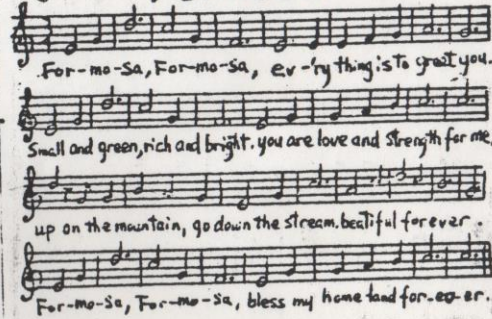 For-mo-sa, For-mo-sa, ev-'ry thing is to greet you.
Small and green, rich and bright. you are love and strength for me.
up on the mountain, go down the stream. beatiful forever.
For-mo-sa, For-mo-sa, bless my home land for-ev-er.